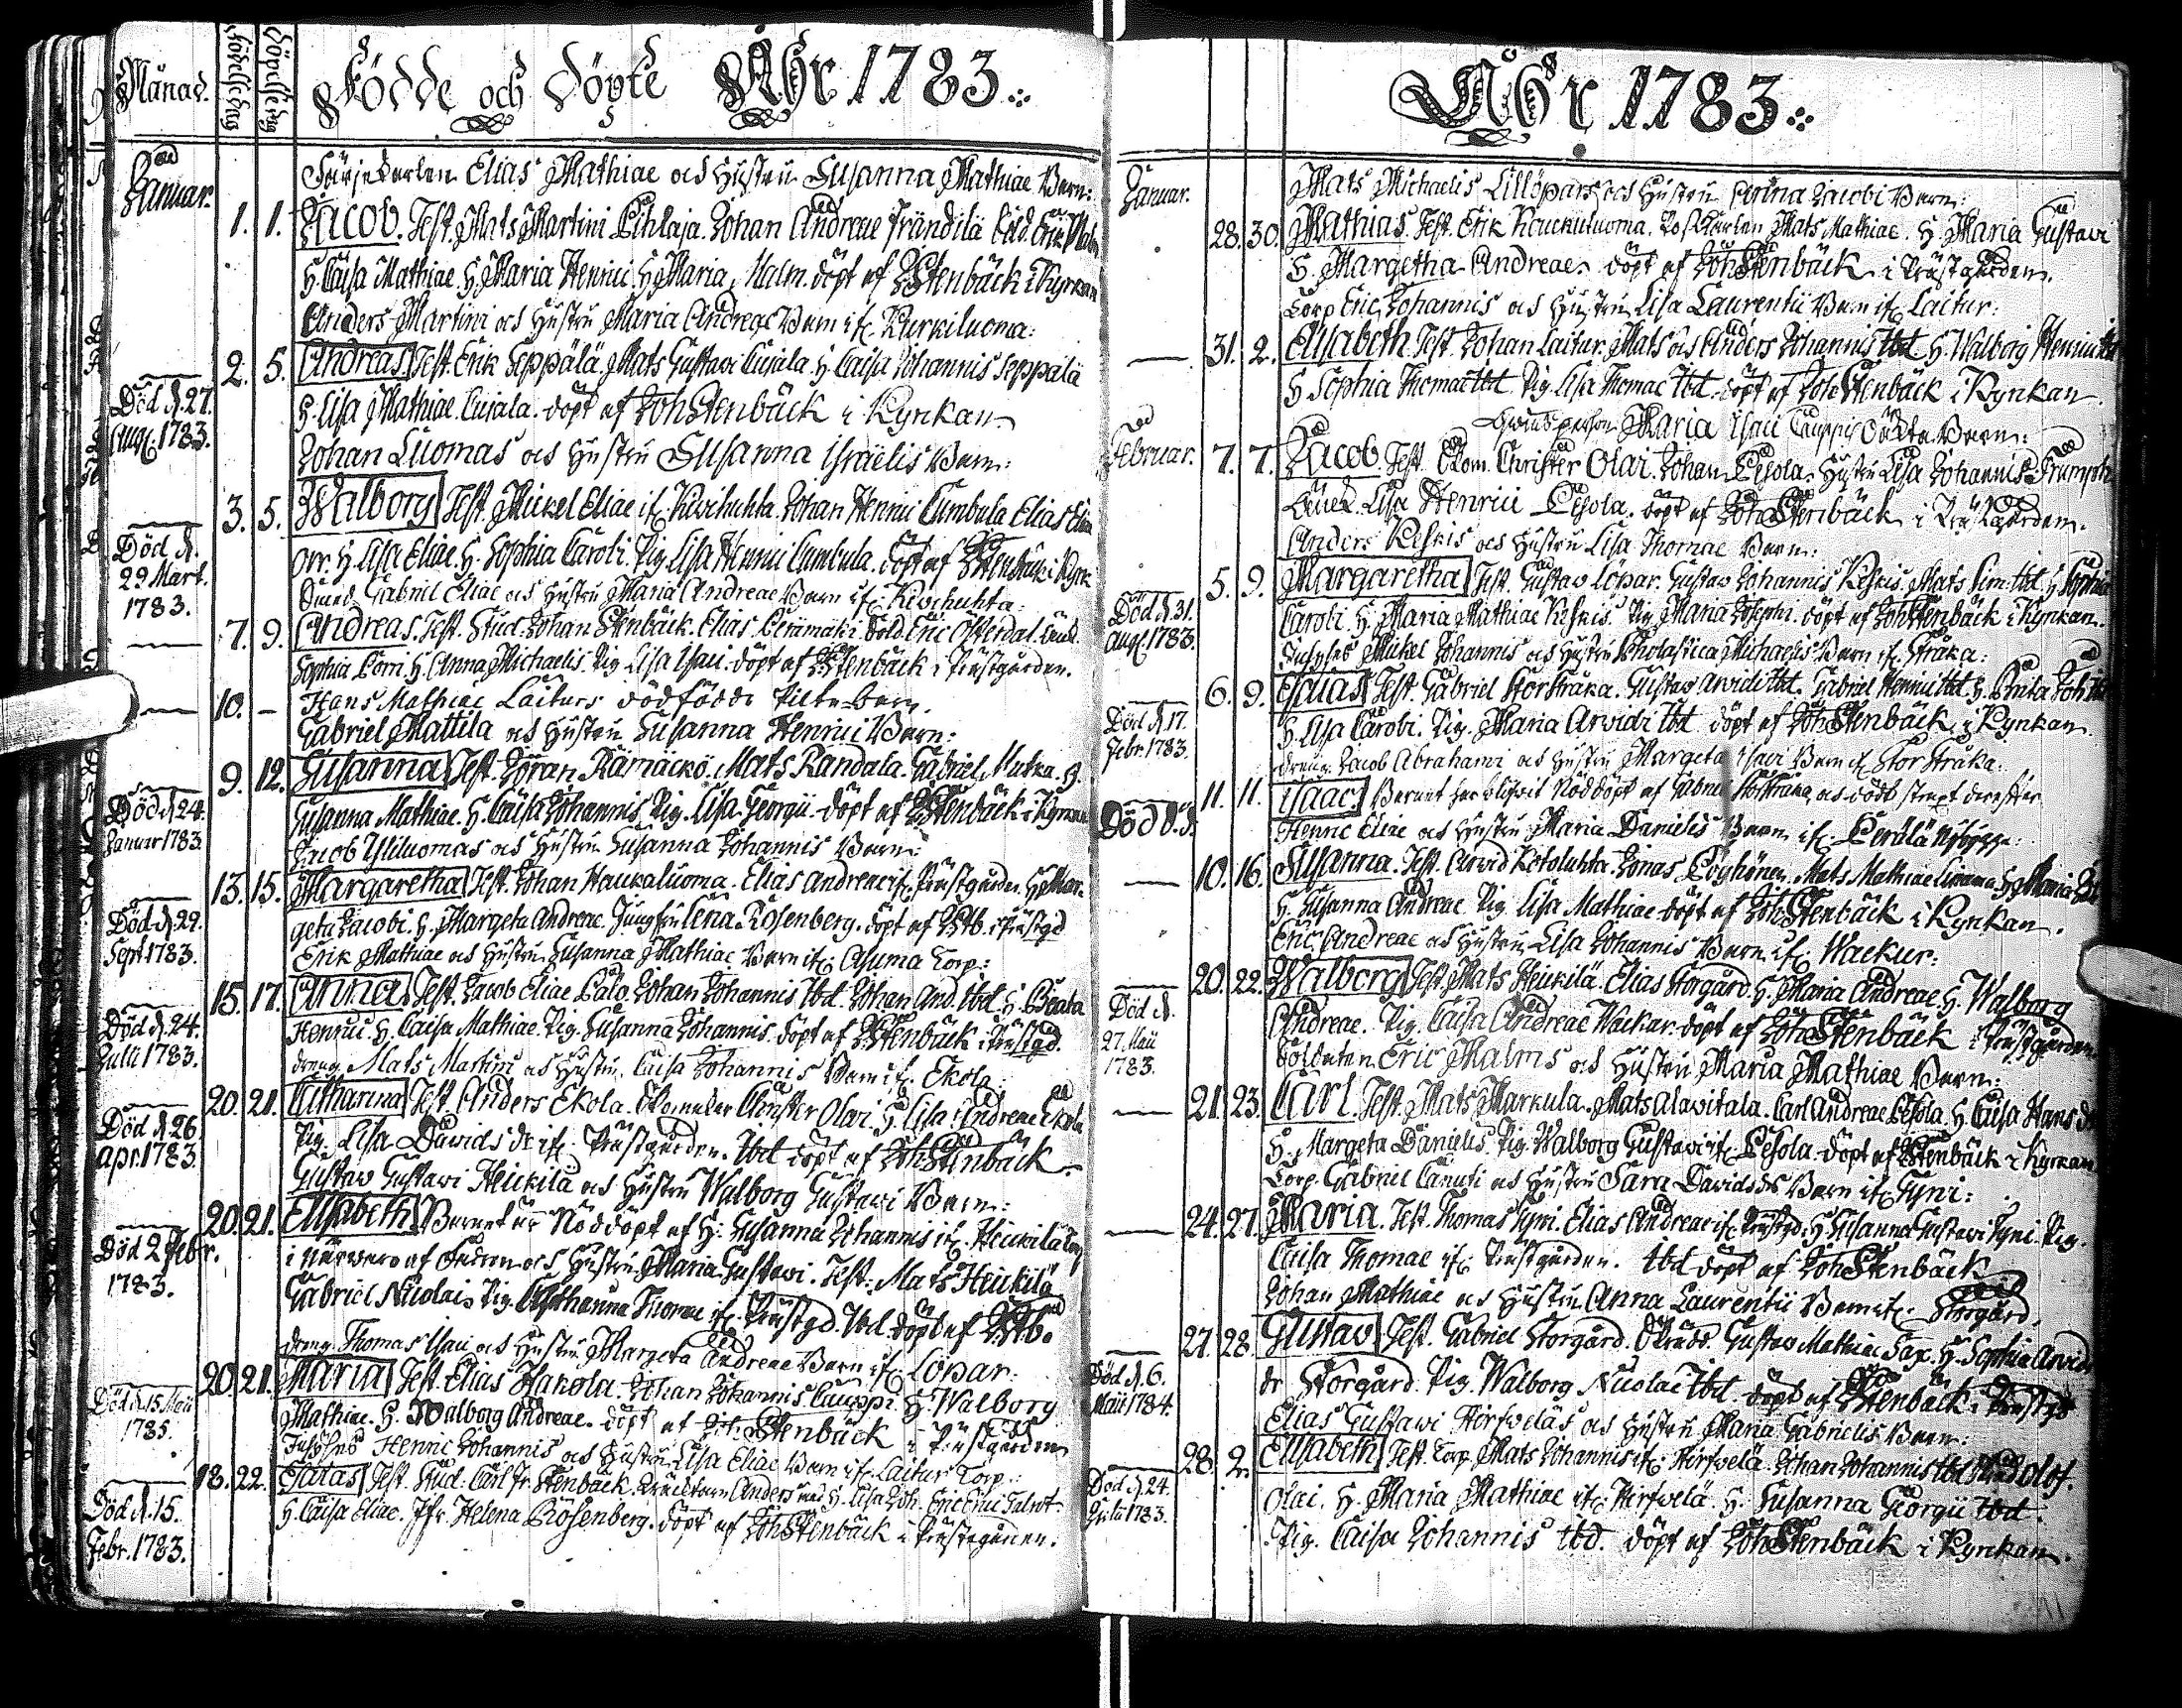 Månad.
Födde och Döpte Åhr 1783.
Januar.
Elias Mathiae och Hustru Susanna Mathiae Barn:
1. 1. Jacob. Test. Mats Martini Pihlaja. Johan Andreae Frändilä
H. Caisa Mathiae. H. Maria Henrici. H. Maria Malm. döpt af JStenbäck i Kyrkan
Anders Martini och Hustru Maria Andreae Barn if. Kurkiluoma:
2. 5. Andreas. Test. Erik Seppälä. Mats Gustavi Cujala. H. Caisa Johannis Seppälä
H. Lisa Mathiae. Cujala. döpt af Joh Stenbäck i Kyrkan
Död d. 27.
Aug. 1783.
Johan Luomas och Hustru Susanna Israëlis Barn:
3. 5. Walborg Test. Mickel Eliae if. Kivihuhta. Johan Henrici Cumbula Elias
H. Lisa Eliae. H. Sophia Caroli. Pig. Lisa Henrici Cumbula. döpt af JStenbäck i Kyrk
Död d.
29 Mart.
1783.
Gabriel Eliae och Hustru Maria Andreae Barn if. Kivihuhta:
7. 9. Andreas. Test. Stud. Johan Stenbäck. Elias Perämäki. Sold. Eric Österdal.
Sophia H. Anna Michaelis. Pig. Lisa Isaci. döpt af JStenbäck i Prästgården.
10. – Hans Mathiae Laiturs dödfödde Pilte-barn.
Gabriel Mattila och Hustru Susanna Henrici Barn:
9. 12. Susanna Test. Jöran Rämäckö. Mats Randala. Gabriel Mutka. H.
Susanna Mathiae. H. Caisa Johannis. Pig. Lisa Georgii. döpt af JStenbäck i Kyrkan
Död d. 24.
Januar 1783.
Jacob Yliluomas och Hustru Susanna Johannis Barn:
13. 15. Margaretha Test. Johan Haukaluoma. Elias Andreae if. Prästgården. H. Mar-
geta Jacobi. H. Margeta Andreae. Jungfru Lena Rosenberg. döpt af JStb. i Prästgd
Död d. 29.
Sept 1783.
Erik Mathiae och Hustru Susanna Mathiae Barn if. Asuma Torp:
15. 17. Anna. Test. Jacob Eliae Palo. Johan Johannis Ibd. Johan And. Ibd. H. Beata
Henrici H. Caisa Mathiae. Pig. Susanna Johannis. döpt af JStenbäck i Prästgd.
Död d. 24.
Julii 1783.
dreng. Mats Martini och Hustru Caisa Johannis Barn if. Ekola:
20. 21. Catharina Test. Anders Ekola. Christer Olavi. H. Lisa Andreae Ekola
Pig. Lisa Davids dr if. Prästgården. Ibd döpt af Joh Stenbäck.
Död d. 26.
Apr. 1783.
Gustav Gustavi Heickilä och Hustru Walborg Gustavi Barn:
20. 21. Elisabeth. Barnet är Nöddöpt af H: Susanna Johannis if. Heickilä
i närwaro af och Hustru Maria Gustavi. Test. Mats Heickilä
Gabriel Nicolai. Pig. Catharina Thomae if. Prästgd. Ibd. döpt af JStb.
Död 2 Febr.
1783.
dreng. Thomas Isaci och Hustru Margeta Andreae Barn if. Löpar:
20. 21. Maria Test. Elias Hakola. Johan Johannis Cauppi. H. Walborg
Mathiae. H. Walborg Andreae. döpt af Joh. Stenbäck i Prästgården
Död d. 15 Maii
1785.
Henric Johannis och Hustru Lisa Eliae Barn if. Laitur Torp.:
18. 22. Esaias Test. Stud. Carl Fr. Stenbäck. Anders H. Lisa Joh.
H. Caisa Eliae. Jfr. Helena Rosenberg. döpt af Joh Stenbäck i Prästegården.
Död d. 15.
Febr. 1783.
Åhr 1783.
Januar.
Mats Michaelis Lillöpars och Hustru Anna Jacobi Barn:
28. 30. Mathias. Test. Erik Mats Mathiae. H. Maria Gustavi
H. Margetha Andreae. döpt af Joh Stenbäck i Prästgården.
Torp Eric Johannis och Hustru Lisa Laurentii Barn if. Laitur:
31. 2. Elisabeth Test. Johan Laitur. Mats och Anders Johannis Ibd. H. Walborg Henrici
H. Sophia Thomae Ibd. Pig. Lisa Thomae Ibd. döpt af Joh Stenbäck i Kyrkan.
Februar.
Maria Isaci Cauppis Oäkta Barn:
7. 7. Jacob. Test. Christer Olai. Johan Pesola. Hustru Lisa Johannis
Lisa Henrici Pesola. döpt af Joh Stenbäck i Prästgården.
Anders Keskis och Hustru Lisa Thomae Barn:
5. 9. Margaretha Test. Gustav Löpar. Gustav Johannis Keskis. Mats Ibd. H. Sophia
Caroli. H. Maria Mathiae Keskis. Pig. Maria Josephi. döpt af Joh Stenbäck i Kyrkan.
Död d. 31.
Aug. 1783.
Mickel Johannis och Hustru Scholastica Michaelis Barn if. Stråka:
6. 9. Esaias Test. Gabriel Storstråka. Gustav Arvidi Ibd. Gabriel Henrici Ibd. H. Brita
H. Lisa Caroli. Pig. Maria Arvidi Ibd. döpt af Joh Stenbäck i Kyrkan.
Död d. 17.
Febr. 1783.
dreng. Jacob Abrahami och Hustru Margeta Isaci Barn if. Stor Stråka:
11. 11. Isaac. Barnet har blifvit Nöddöpt af Gabriel Storstråka, och dödt strax derefter
Död d. d.
Henric Eliae och Hustru Maria Danielis Barn if. Perälä Nybygge:
10. 16. Susanna. Test. Arvid Kotoluhta. Jonas Mats Mathiae H. Maria
H. Susanna Andreae. Pig. Lisa Mathiae döpt af Joh Stenbäck i Kyrkan.
Eric Andreae och Hustru Lisa Johannis Barn if. Wackur:
20. 22. Walborg Test. Mats Heickilä. Elias Storgård. H. Maria Andreae H. Walborg
Andreae. Pig. Caisa Andreae Wackur. döpt af Joh Stenbäck i Prästgården
Död d.
27. Maii
1783.
Soldaten Eric Malms och Hustru Maria Mathiae Barn:
21. 23. Carl. Test. Mats Markula. Mats Alavitala. Carl Andreae Pesola. H. Caisa Hans dr
H. Margeta Danielis. Pig. Walborg Gustavi if. Pesola. döpt af JStenbäck i Kyrkan
Torp. Gabriel Canuti och Hustru Sara Davids dr Barn if. Fyni:
24. 27. Maria. Test. Thomas Fyni. Elias Andreae if. Prästgd. H. Susanna Gustavi Fyni. Pig.
Caisa Thomae if. Prästgården. Ibd döpt af Joh Stenbäck
Johan Mathiae och Hustru Anna Laurentii Barn if. Storgård.
27. 28. Gustav. Test. Gabriel Storgård. Gustav Mathiae Sax. H. Sophia Arvids
dr Storgård. Pig. Walborg Nicolai Ibd. döpt af JStenbäck i Prästgd
Död d. 6.
Maii 1784.
Elias Gustavi Hirfveläs och Hustru Maria Gabrielis Barn:
28. 2. Elisabeth. Test. Torp. Mats Johannis if. Hirfvelä. Johan Johannis Ibd. Olof.
Olai. H. Maria Mathiae if. Hirfvelä. H. Susanna Georgii Ibd.
Pig. Caisa Johannis Ibd. döpt af Joh Stenbäck i Kyrkan.
Död d. 24.
Julii 1783.